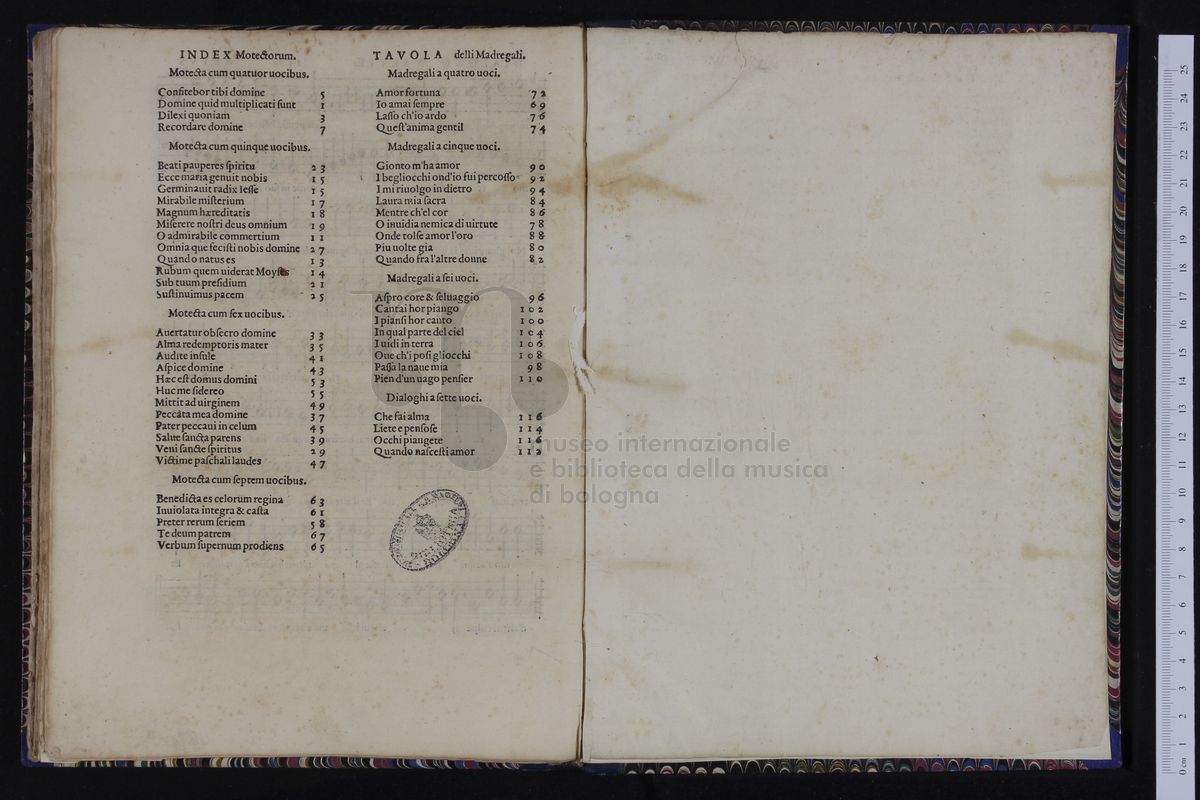 INDEX Motectorum.
Motecta cum quatuor uocibus.
Confitebor tibi domine 5
Domine quid multiplicati sunt 1
Dilexi quoniam 3
Recordare domine 7
Motecta cum quinque uocibus.
Beati pauperes spiritu 23
Ecce maria genuit nobis 15
Germinauit radix Iesse 15
Mirabile misterium 17
Magnum hæreditatis 18
Miserere nostri deus omnium 19
O admirabile commertium 11
Omnia que fecisti nobis domine 27
Quando natus es 13
Rubum quem uiderat Moyses 14
Sub tuum presidium 21
Sustinuimus pacem 25
Motecta cum sex uocibus.
Auertatur obsecro domine 33
Alma redemptoris mater 35
Audite insule 41
Aspice domine 43
Hæc est domus domini 53
Huc me sidereo 55
Mittit ad uirginem 49
Peccata mea domine 37
Pater peccaui in celum 45
Salue sancta parens 39
Veni sancte spiritus 29
Victime paschali laudes 47
Motecta cum septem uocibus.
Benedicta es celorum regina 63
Inuiolata integra & casta 61
Preter rerum seriem 58
Te deum patrem 67
Verbum supernum prodiens 65
TAVOLA delli Madregali.
Madregali a quatro uoci.
Amor fortuna 72
Io amai sempre 69
Lasso ch'io ardo 76
Quest'anima gentil 74
Madregali a cinque uoci.
Gionto m'ha amor 90
I begliocchi ond'io fui percosso 92
I mi riuolgo in dietro 94
Laura mia sacra 84
Mentre ch'el cor 86
O inuidia nemica di uirtute 78
Onde tolse amor l'oro 88
Piu uolte gia 80
Quando fra l'altre donne 82
Madregali a sei uoci.
Aspro core & seluaggio 96
Cantai hor piango 102
I piansi hor canto 100
In qual parte del ciel 104
I uidi in terra 106
Oue ch'i posi gliocchi 108
Passa la naue mia 98
Pien d'un uago pensier 110
Dialoghi a sette uoci.
Che fai alma 116
Liete e pensose 114
Occhi piangete 116
Quando nascesti amor 112
museo internazionale
e biblioteca della musica
di bologna
0 cm 1 2 3 4 5 6 7 8 9 10 11 12 13 14 15 16 17 18 19 20 21 22 23 24 25